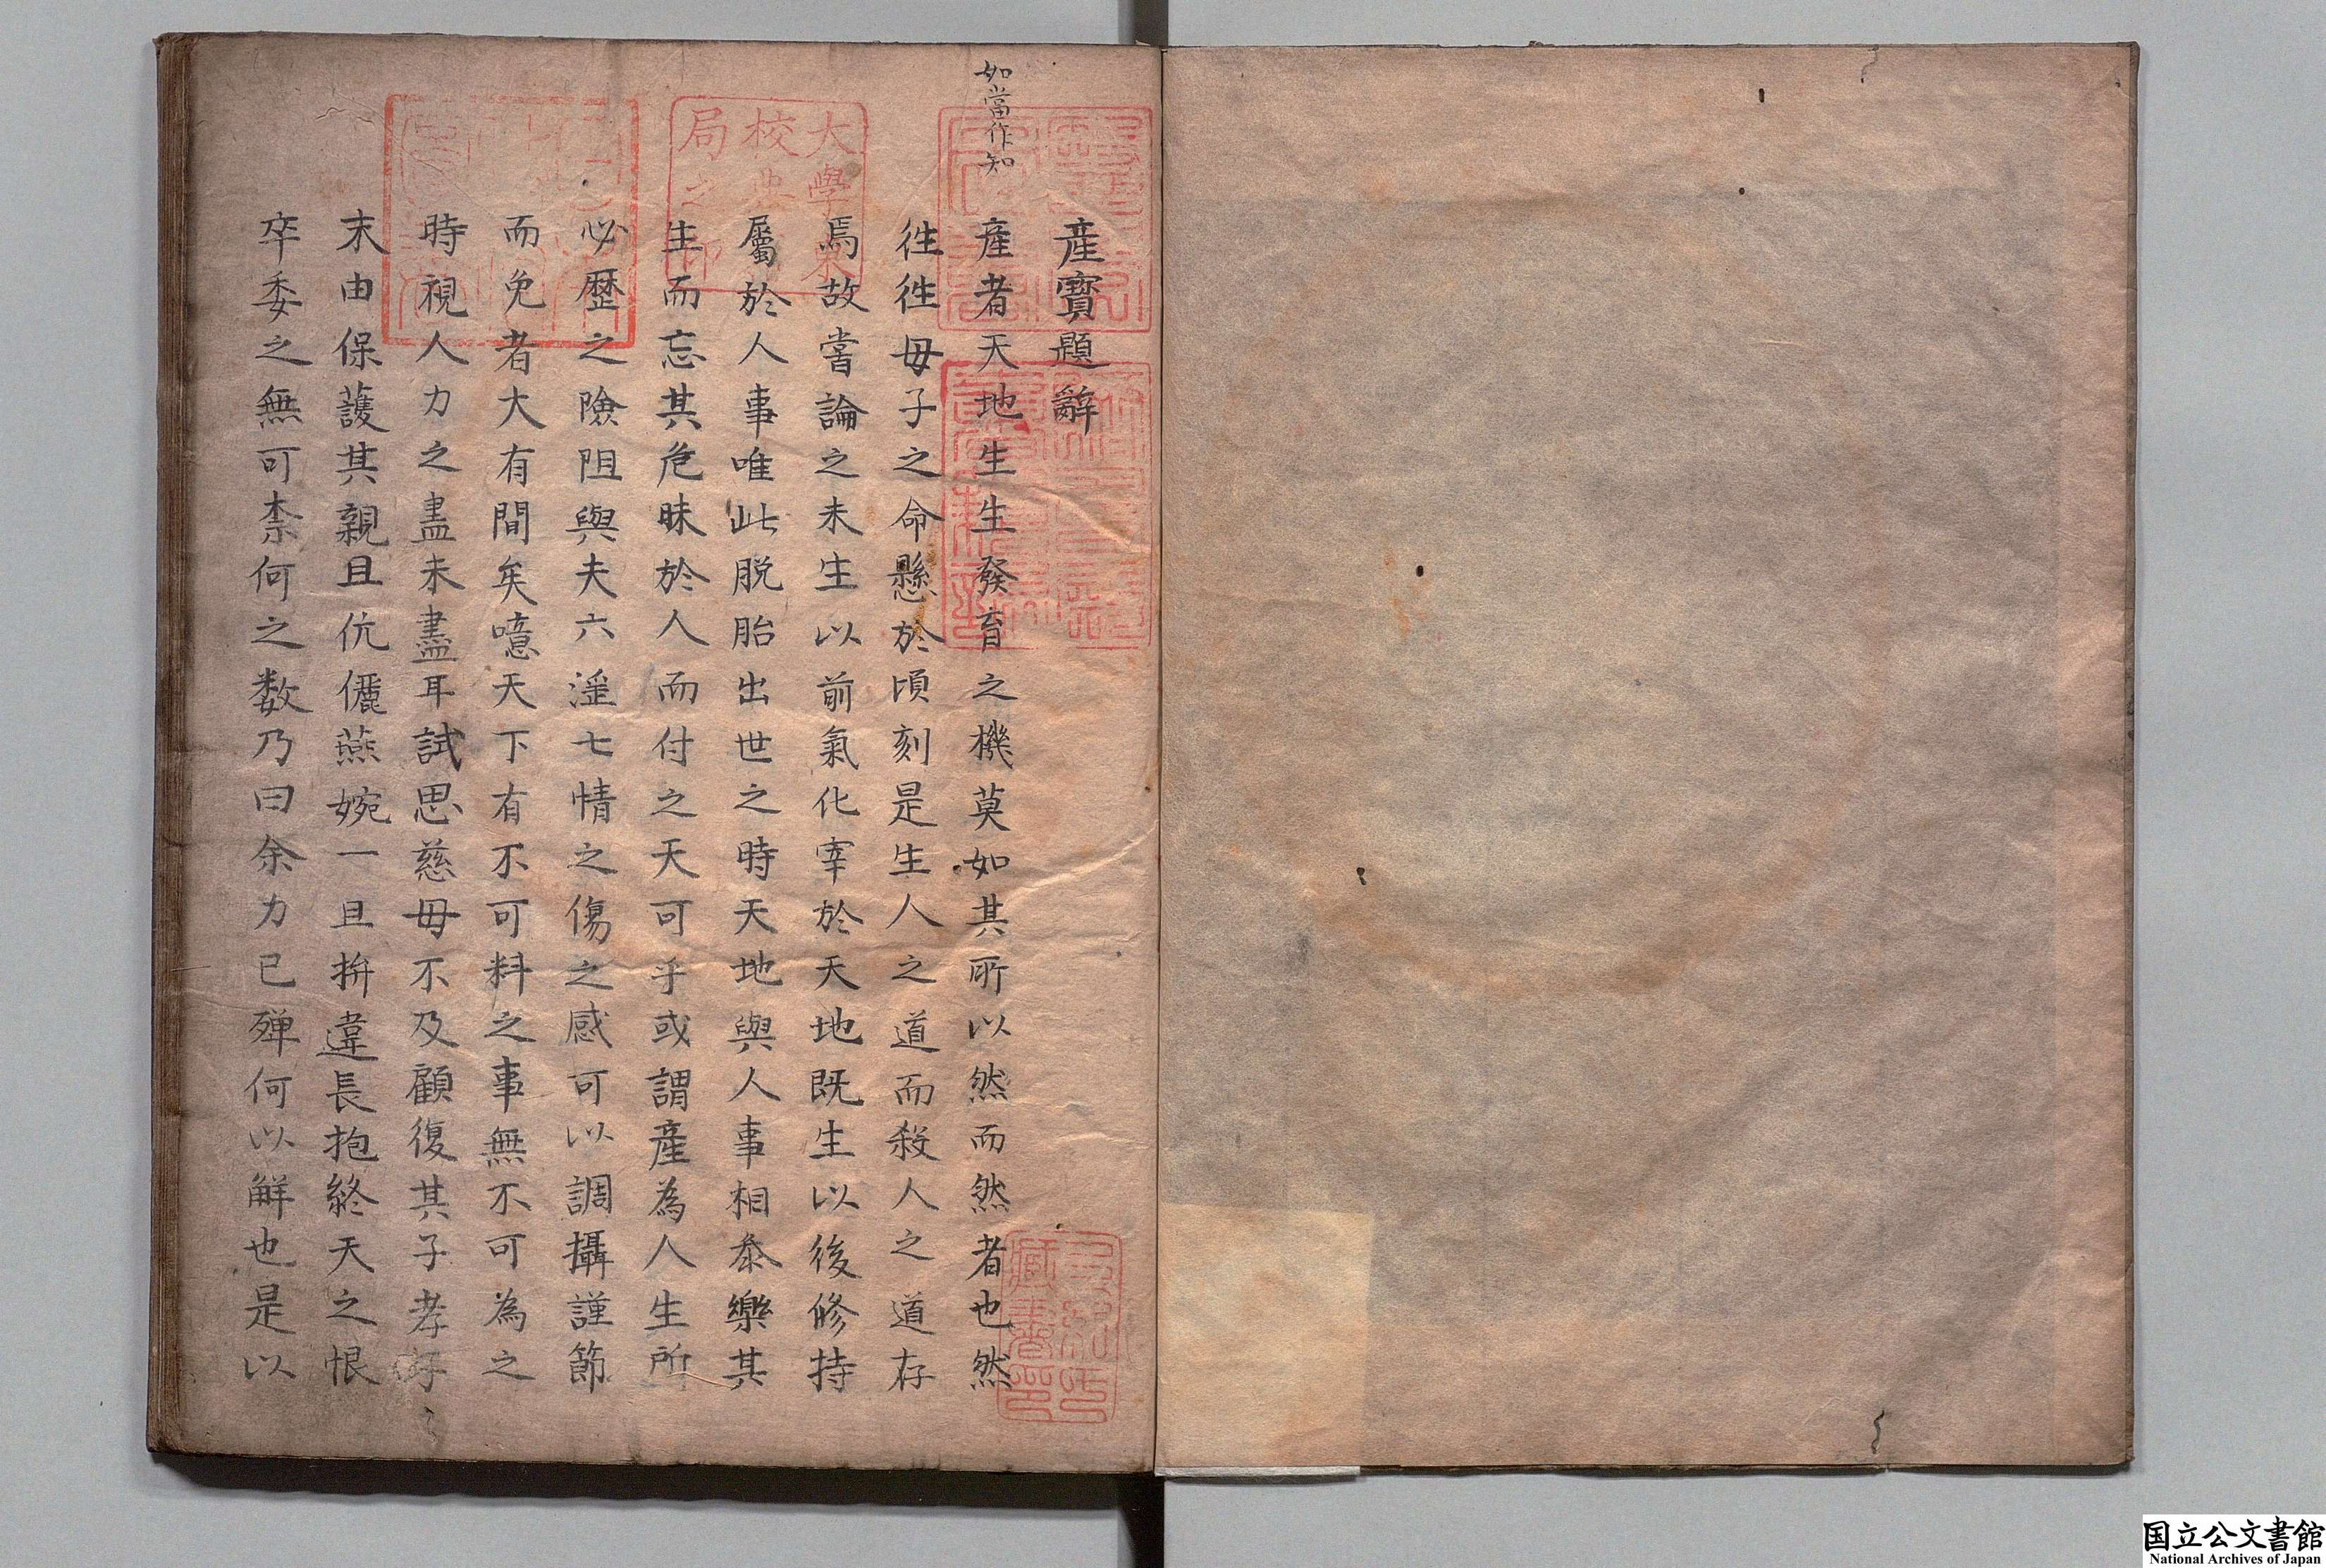 如當作知
產寳題辭
産者天地生生發育之機莫如其所以然而然者也然
徃徃母子之命懸於頃刻是生人之道而殺人之道存
焉故嘗論之未生以前氣化宰於天地既生以後修持
屬於人事唯此脱胎出世之時天地與人事相叅樂其
生而忘其危昧於人而付之天可乎或謂產為人生所
必歷之險阻與夫六滛七情之傷之感可以調攝謹節
而免者大有間矣噫天下有不可料之事無不可為之
時視人力之盡未盡耳試思慈母不及顧復其子孝子
末由保護其親且伉儷燕婉一旦拚違長抱終天之恨
卒委之無可柰何之数乃曰余力已殫何以解也是以
大學東
校典
局之印
藏書
国立公文書館
National Archives of Japan